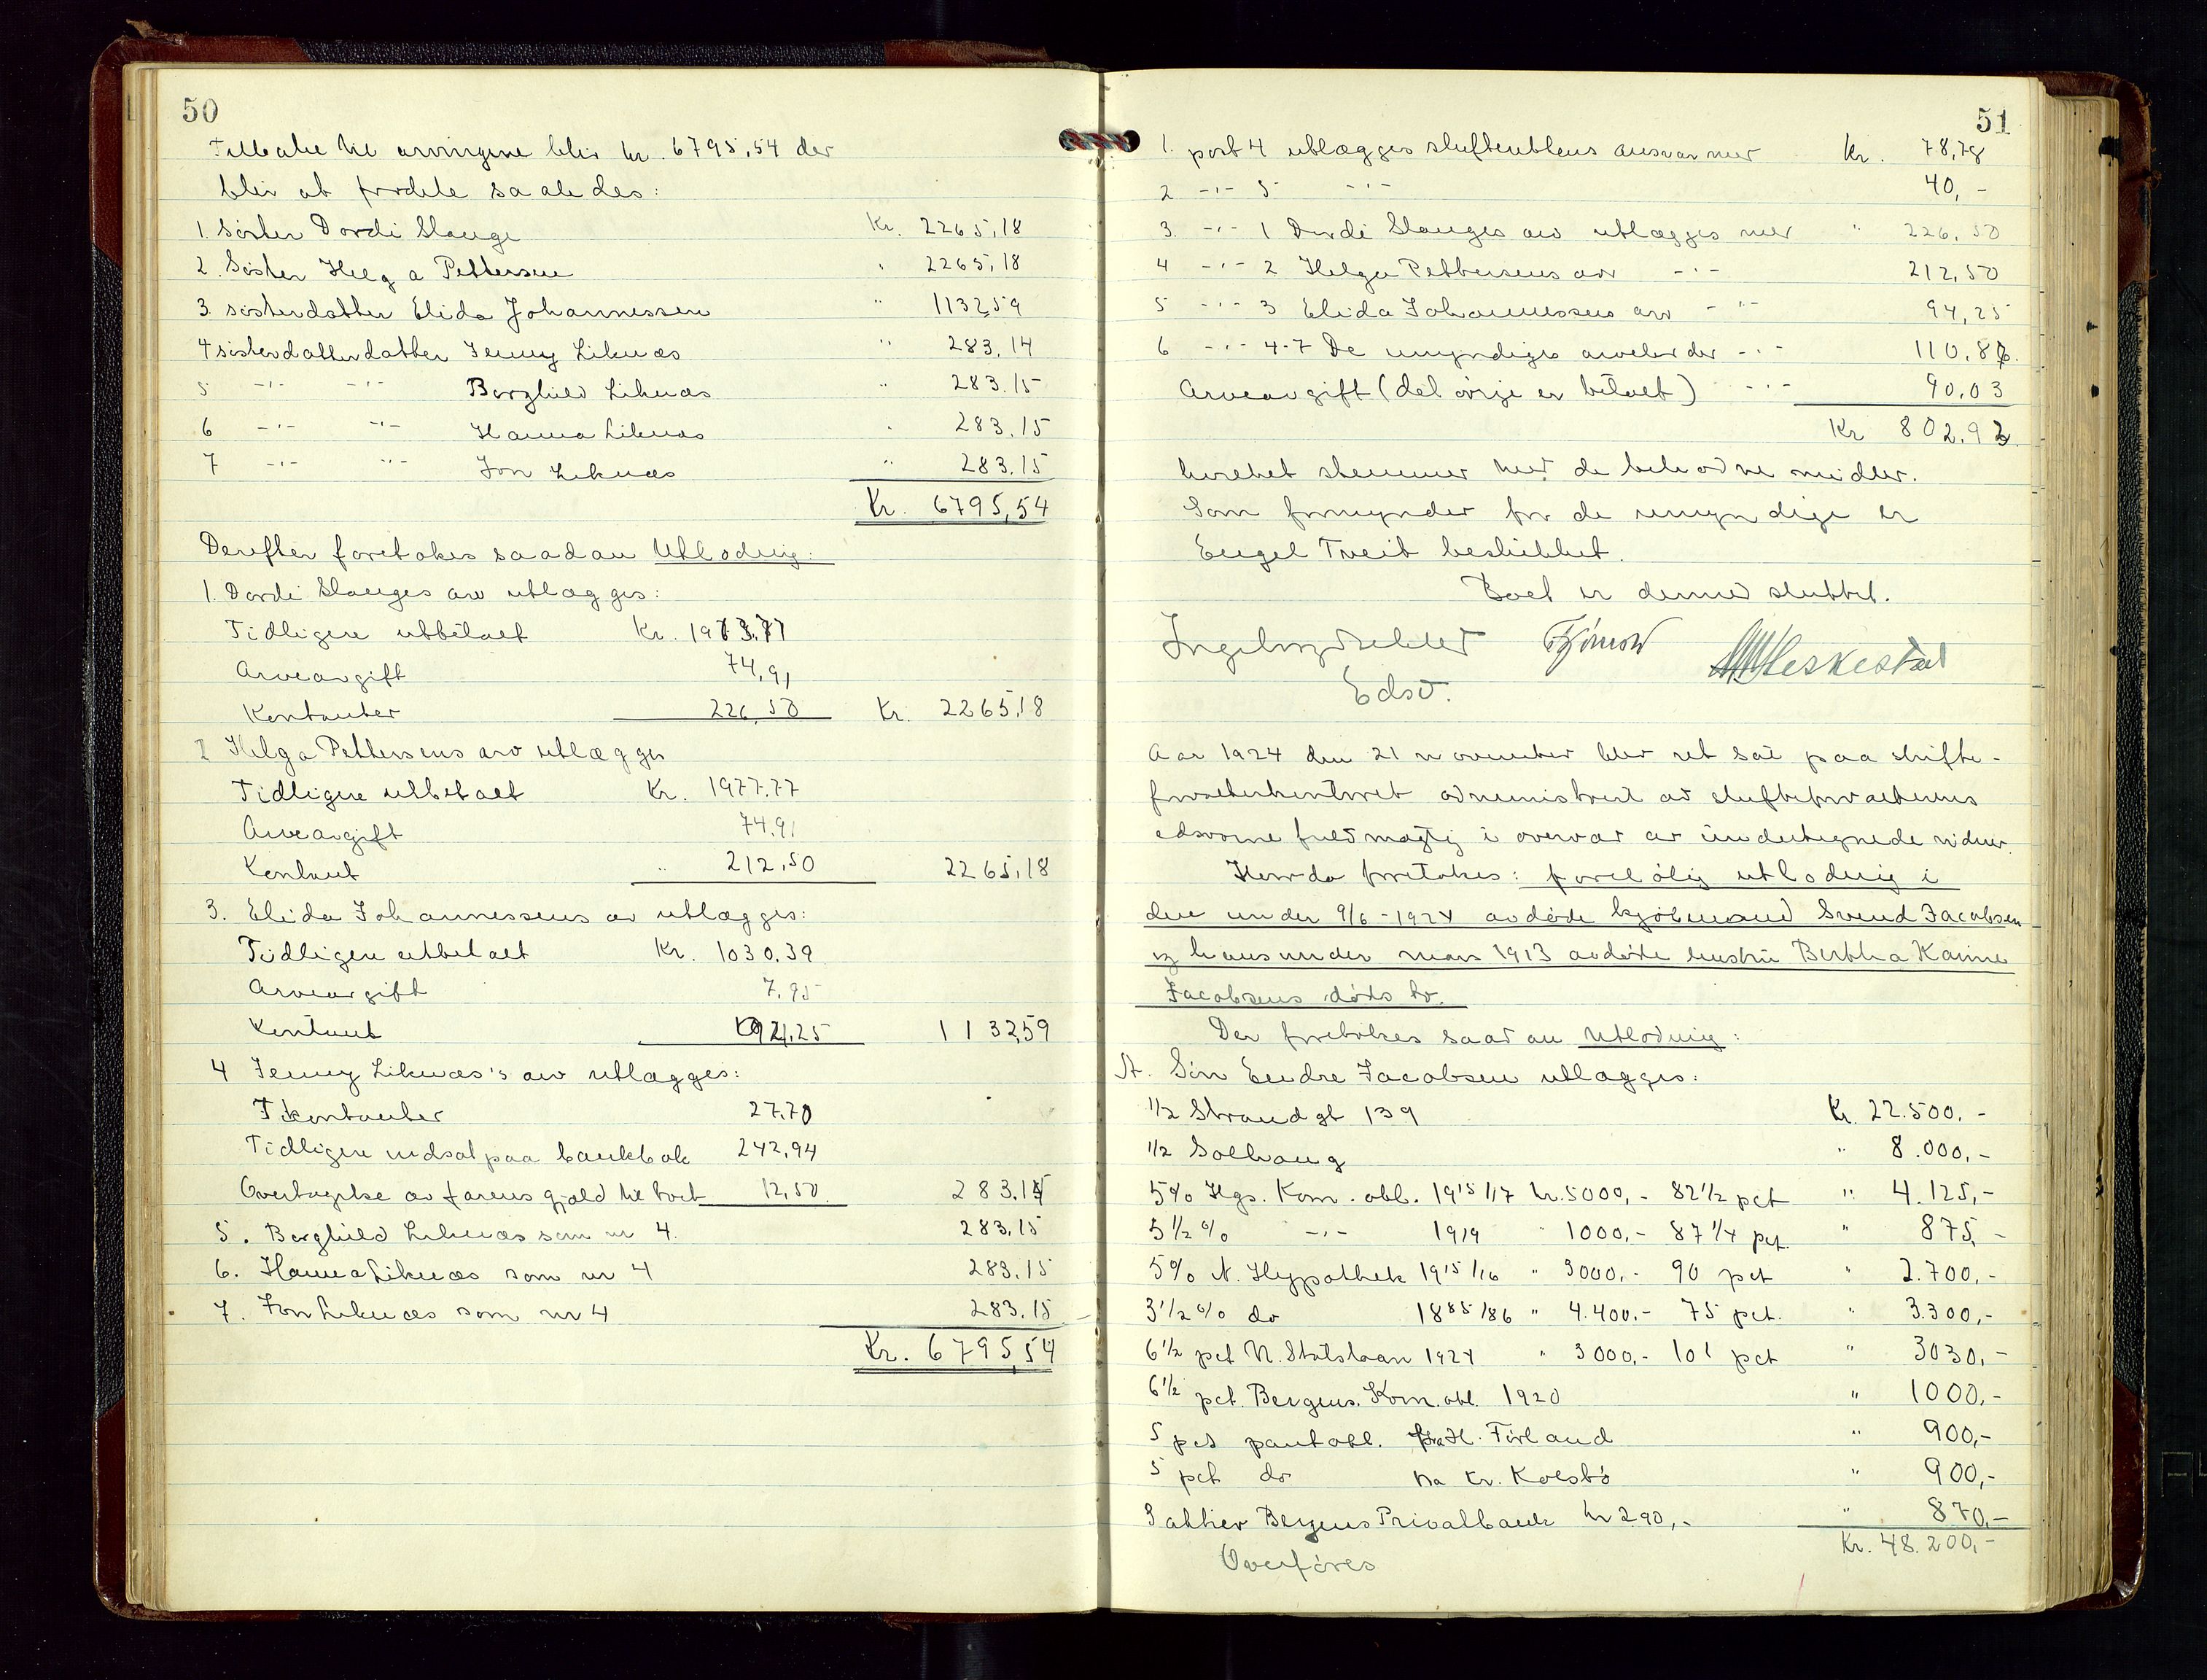 50
Tilbake til arvingene blir kr. 6795,54 der
blir at fordele saaledes:
1. Søster Dordi Stange Kr. 2265,18
2. Søster Helga Pettersen " 2265,18
3. søsterdatter Elida Johannessen " 1132,59
4 søsterdatterdatter Jenny Liknæs " 283,14
5 -"- -"- Borghild Liknæs " 283.15
6 -"- -"- Hanna Liknæs " 283.15
7 -"- -"- Jon Liknæs " 283.15
Kr. 6795,54
Derefter foretokes saadan Utlodning:
1. Dordi Stanges arv utlægges:
Tidligere utbetalt Kr. 1973.77
Arveavgift 74,91
Kontanter 226,50 Kr. 2265,18
2 Helga Pettersens arv utlægges
Tidligere utbetalt Kr. 1977.77
Arveavgift 74.91
Kontant " 212,50 2265,18
3. Elida Johannessens arv utlægges:
Tidligere utbetalt Kr. 1030.39
Arveavgift 7.95
Kontant 94,25 1132,59
4 Jenny Liknæs's arv utlægges:
Kontanter 27.70
Tidligere indsat paa bankbok 242,94
Overtagelse av farens gjæld til boet 12,50 283.14
5. Borghild Liknæs som nr 4. 283,15
6. Hanna Liknæs som nr 4 283,15
7. Jon Liknæs som nr 4 283.15
Kr. 6795,54
51
1. post 4 utlægges skifterettens ansvar mer Kr. 78,78
2 -"- 5 -"- 40,-
3. -"- 1 Dordi Stanges arv utlægges mer " 226,50
4 -"- 2 Helga Pettersens arv -"- 212,50
5 -"- 3 Elida Johannessens arv -"- 94,25
6 -"- 4-7 De umyndiges arvelodder -"- 110.86
Arveavgift (det øvrige er betalt) -"- 90.03
Kr 802.92
hvilket stemmer med de beholdne midler.
Som formynder for de umyndige er
Engel Tveit beskikket.
Boet er dermed sluttet.
Edsv.
Aar 1924 den 21 november blev ret sat paa skifte-
forvalterkontoret administrert av skifteforvalterens
edsvorne fuldmægtig i overvær av undertegnede vidner.
Herda foretokes: foreløbig utlodning i
den under 9/6-1924 avdøde kjøbmand Svend Jacobsen
og hans under mars 1913 avdøde hustru Bertha Karine
Jacobsens døds bo.
Der foretokes saadan Utlodning:
A. Søn Endre Jacobsen utlægges:
1/2 Strandgt 139 Kr. 22.500.-
1/2 Solhaug " 8.000,-
5% Hgs. Kom. obl. 1915/17 kr. 5000,- 82 1/2 pct " 4.125,-
5 1/2 % -"- 1919 " 1000,- 87 1/4 pct. " 875,-
5% N. Hypothek 1915/16 " 3000,- 90 pct " 2.700,-
3 1/2 % do 1885/86 " 4.400.- 75 pct. " 3.300,-
6 1/2 pct N. Statslaan 1924 " 3000,- 101 pct " 3030,-
6 1/2 pct. Bergens. Kom. obl. 1920 " 1000,-
5 pct pantobl. fra H. Førland " 900,-
5 pct do fra Kr. Kolstø " 900,-
3 aktier Bergens Privatbank kr 290,- " 870,-
Kr. 48.200,-
Overføres